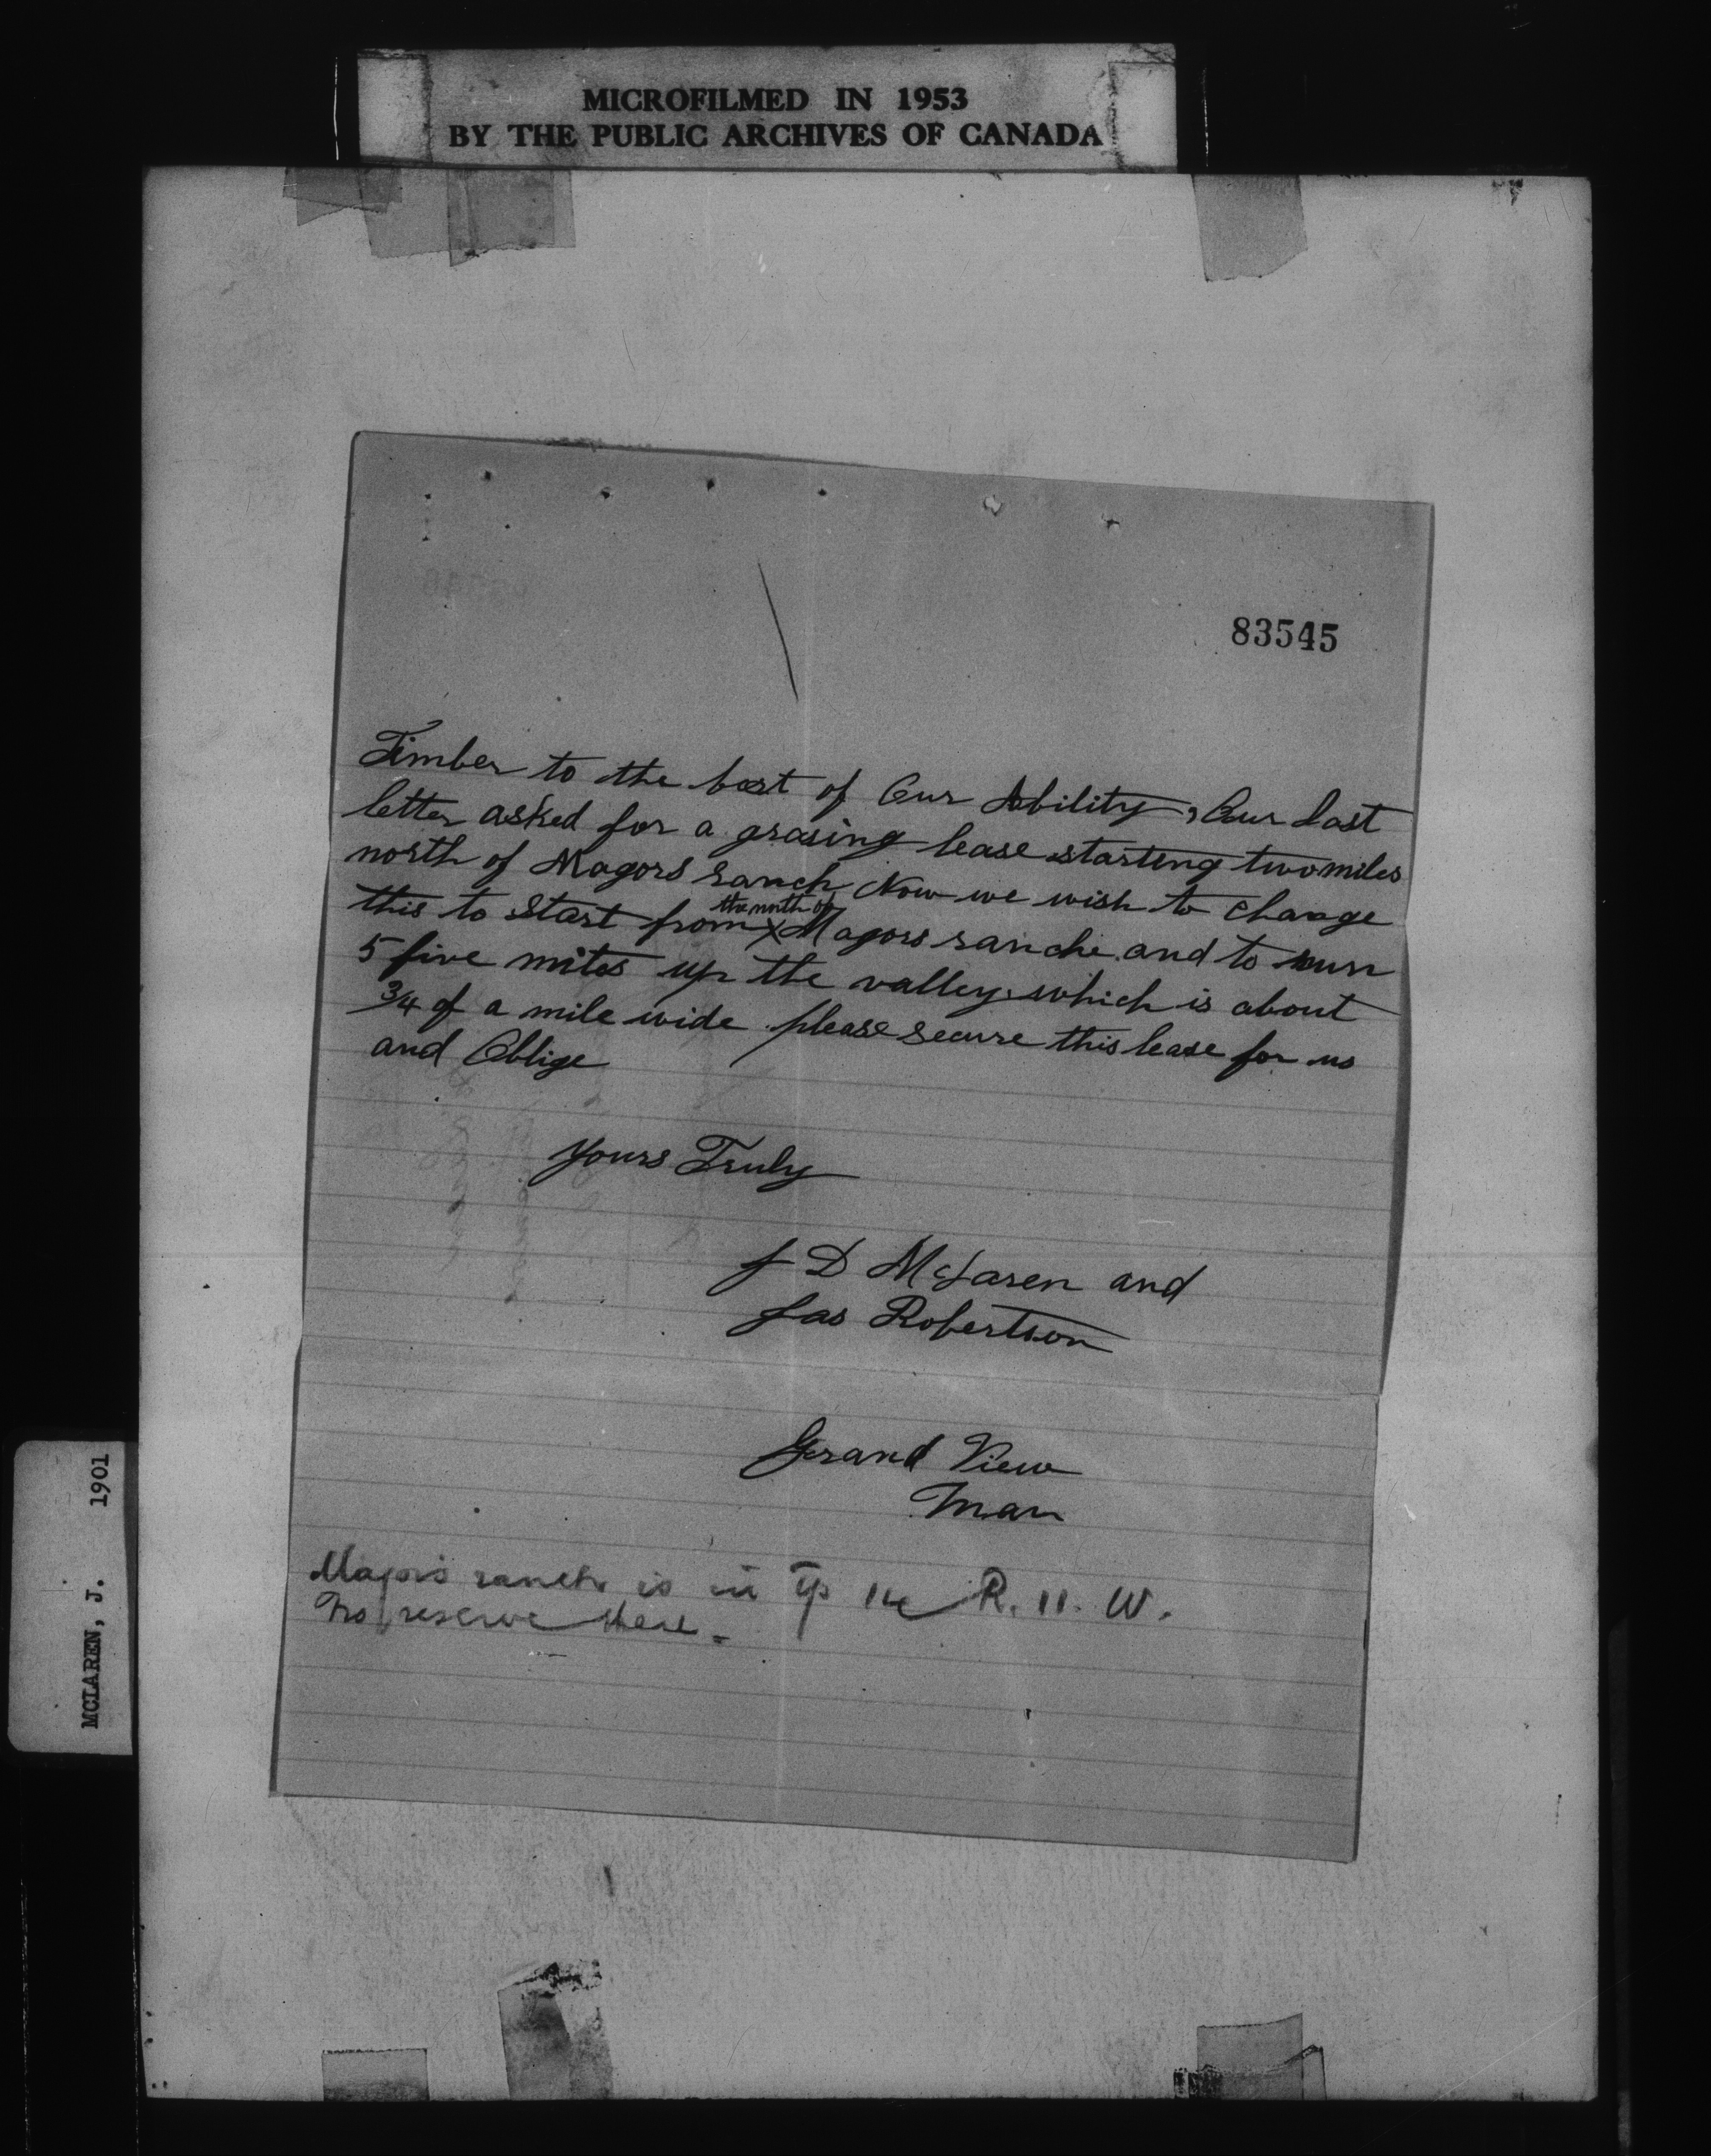 MICROFILMED IN 1953
BY THE PUBLIC ARCHIVES OF CANADA
83545
Timber to the best of Our Ability, Our last
letter asked for a grasing lease starting two miles
north of Magors ranch Now we wish to change
the north of
this to Start from x Magors ranche and to run
5 five miles up the valley which is about
3/4 of a mile wide please secure this lease for us
and Oblige
Yours Truly
J D McLaren and
Jas Robertson
Grand View
Man
Magors ranch is in Tp 14 R. 11. W.
No reserve there.
MCLAREN, J. 1901